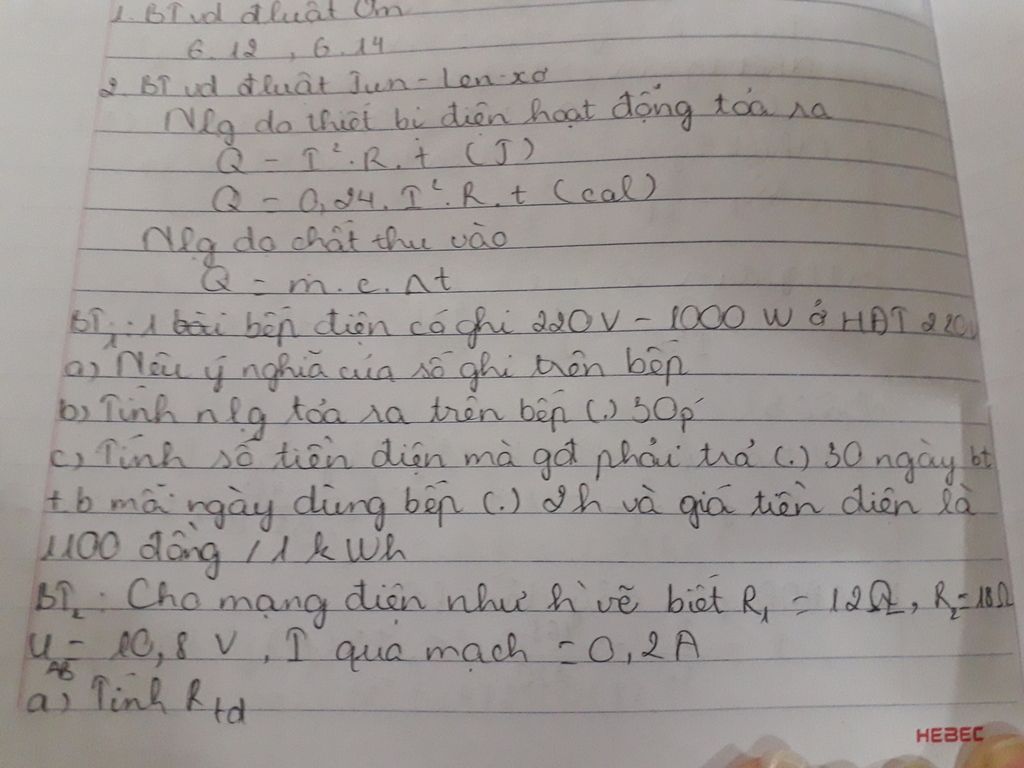 1. BT vd đluật Ôm
6.12, 6.14
2 BT vd đluật Jun-Len-xơ
Nlg do thiết bị điện hoạt động tỏa ra
Q = I². R. t (J)
Q = 0,24. I². R. t (cal)
Nlg do chất thu vào
Q = m. c. Δt
BT₁: 1 bếp điện có ghi 220V - 1000W ở HĐT 220V
a) Nêu ý nghĩa của số ghi trên bếp
b) Tính nlg tỏa ra trên bếp (.) 30p'
c) Tính số tiền điện mà gđ phải trả (.) 30 ngày bt
tb mỗi ngày dùng bếp (.) 2h và giá tiền điện là
1100 đồng /1kWh
BT₂: Cho mạng điện như h vẽ biết R₁ = 12Ω, R₂=18Ω
U_AB = 10,8 V, I qua mạch = 0,2A
a) Tính Rtđ
HEBEC